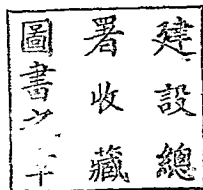 建設總
署收藏
圖書